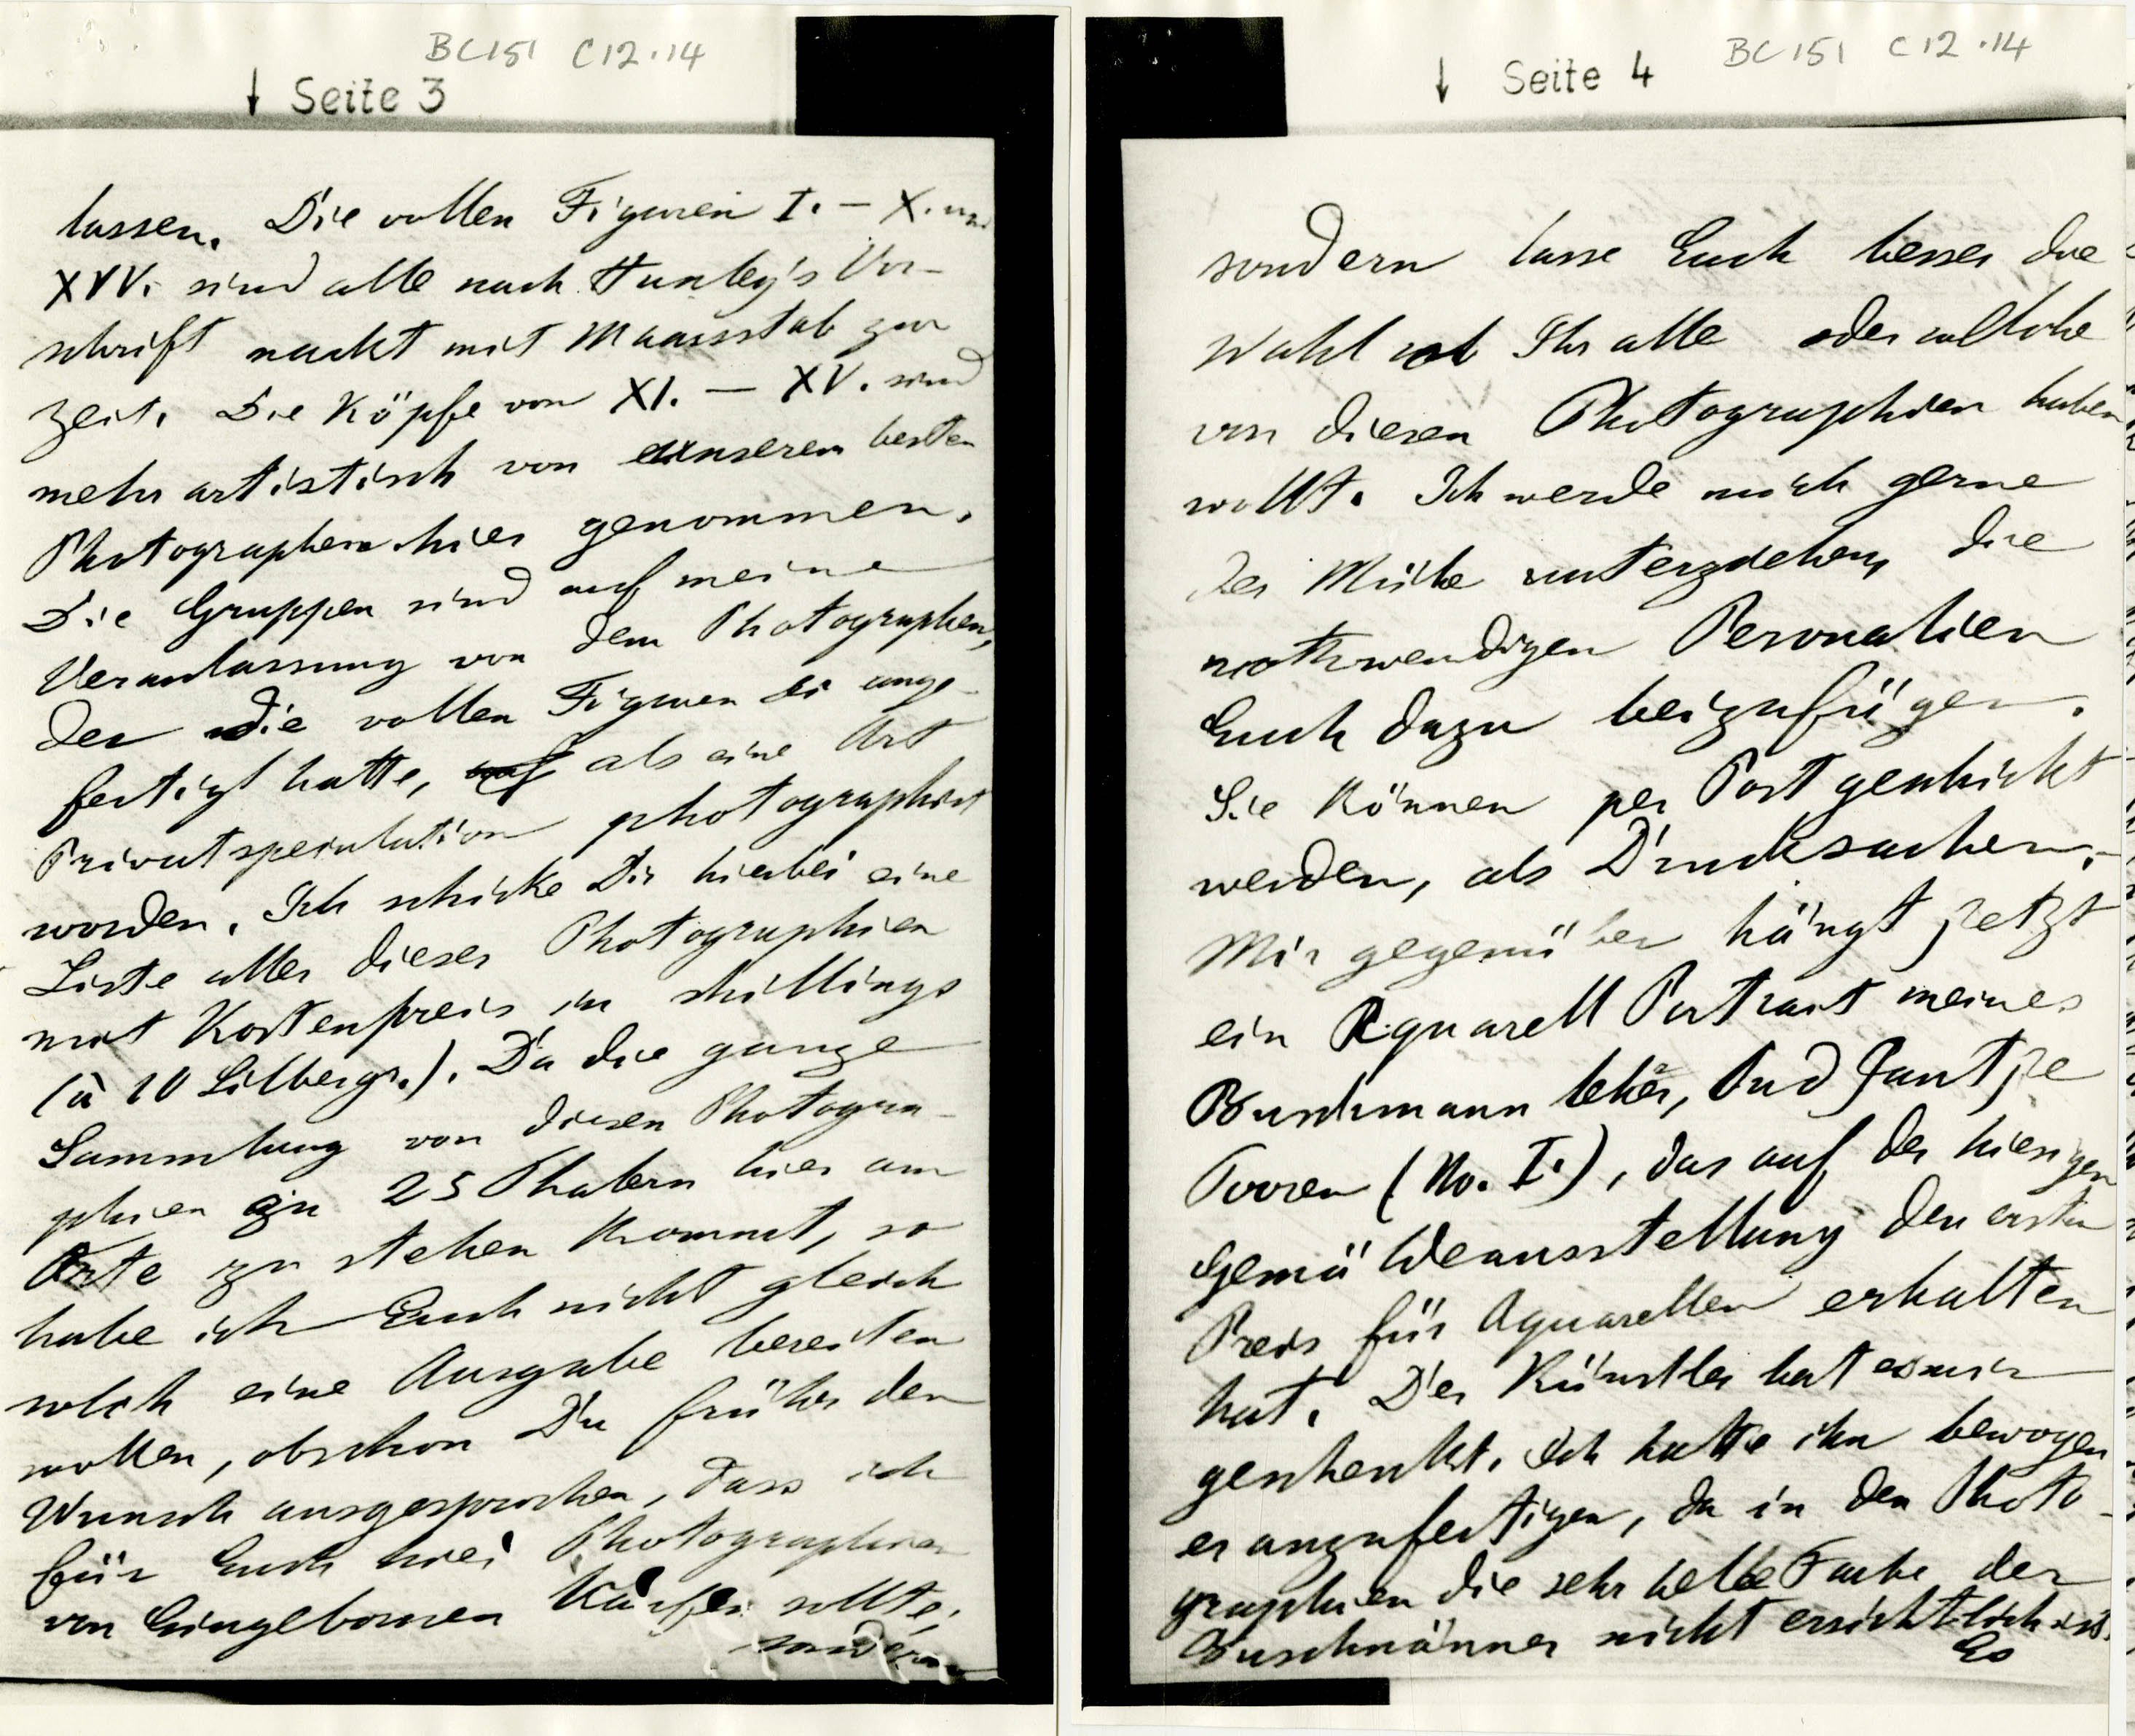 BC151 C12.14
↓ Seite 3
lassen. Die vollen Figuren I. – X. und
XVI. sind alle nach Huxley's Vor-
schrift nackt mit Maassstab zur
Zeit. Die Köpfe von XI. – XV. sind
mehr artistisch von unserem besten
Photographen hier genommen.
Die Gruppen sind auf meine
Veranlassung von dem Photographen,
der die vollen Figuren ange-
fertigt hatte, als eine Art
Privatspeculation photographirt
worden. Ich schicke Dir hierbei eine
Liste aller dieser Photographien
mit Kostenpreis in shillings
(à 10 Silbergr.). Da die ganze
Sammlung von diesen Photogra-
phien zu 25 Thalern hier am
Orte zu stehen kommt, so
habe ich Euch nicht gleich
solch eine Ausgabe bereiten
wollen, obschon Du früher den
Wunsch ausgesprochen, dass ich
für Euch hier Photographien
von Eingebornen kaufen sollte,
sondern
BC151 C12.14
↓ Seite 4
sondern lasse Euch besser die
Wahl ob Ihr alle oder welche
von diesen Photographien haben
wollt. Ich werde mich gerne
der Mühe unterziehen, die
nothwendigen Personalien
Euch dazu beizufügen.
Sie können per Post geschickt
werden, als Drucksachen.–
Mir gegenüber hängt jetzt
ein Aquarell Portrait meines
Buschmann lehrers, Oud Jantje
Tooren (No. I.), das auf der hiesigen
Gemäldeausstellung den ersten
Preis für Aquarellen erhalten
hat. Der Künstler hat es mir
geschenkt. Ich hatte ihn bewogen
es anzufertigen, da in den Photo-
graphien die sehr helle Farbe der
Buschmänner nicht ersichtlich ist.
Es